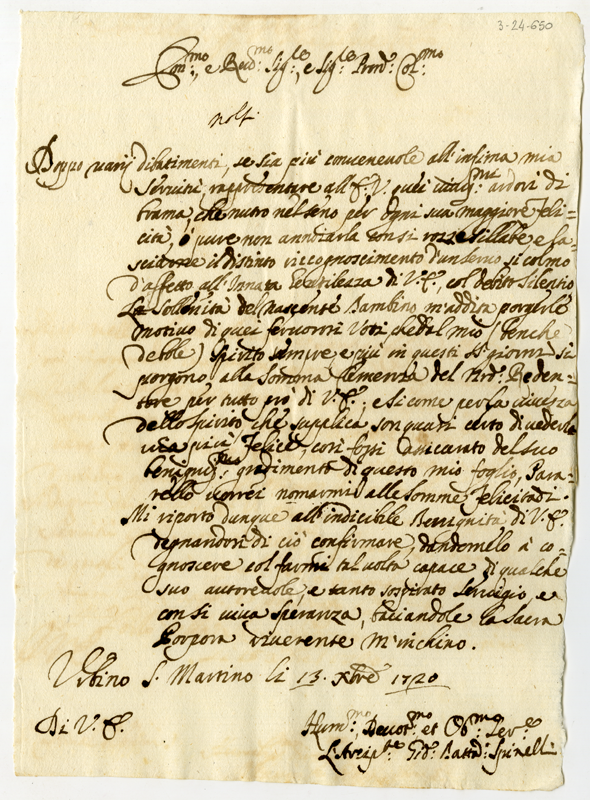 3-24-650
Em.mo, e Rev.mo Sig.re, e Sig.re Pron.e Col.mo
Doppo varij dibatimenti, se sia più convenevole all'infima mia
Servitù rappresentare all'E. V. quei ardori di
brama, che nutro nel seno per ogni sua maggiore feli=
cità, ò pure non annoiarla con sì rozze sillabe e la=
sciarne il distinto riccognoscimento d'un servo sì colmo
d'affetto all'Innata Gentilezza di V. E., col debito silentio
La Sollenità del nascente Bambino m'addita porgerle
motivo di quei fervorosi Voti che dal mio (benche
debole) spirito sempre e più in questi S.ti giorni si
porgono alla Somma Clemenza del N.ro Reden=
tore per tutto prò di V. E.; e si come per la vivezza
dello spirito che supplica son quasi certo di vederla
via più Felice, così fossi assicurato del suo
benignis.mo gradimento di questo mio foglio,
vorrei nomarmi alle somme felicitadi.
Mi riporto dunque all'indicibile Benignità di V. E.
degnandosi di ciò confirmare, dandomelo à co=
gnoscere col farmi tal volta capace di qualche
suo autorevole, e tanto sospirato servigio, e
con sì viva speranza, baciandole la Sacra
Porpora riverente m'inchino.
Urbino S. Martino li 13. Xbre 1720
Di V. E.
Hum.mo Devot.mo et Obb.mo Ser.e
L'Arcip.te Gio: Batta: Spinelli